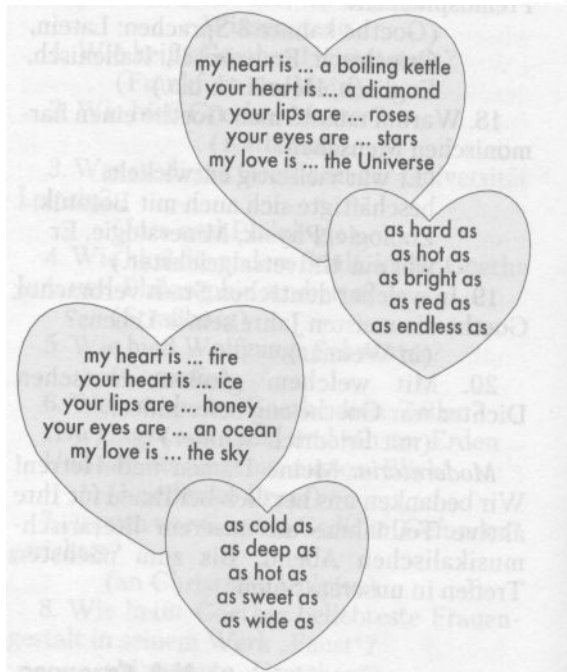 my heart is ... a boiling kettle
your heart is ... a diamond
your lips are ... roses
your eyes are ... stars
my love is ... the Universe
as hard as
as hot as
as bright as
as red as
as endless as
my heart is ... fire
your heart is ... ice
your lips are ... honey
your eyes are ... an ocean
my love is ... the sky
as cold as
as deep as
as hot as
as sweet as
as wide as